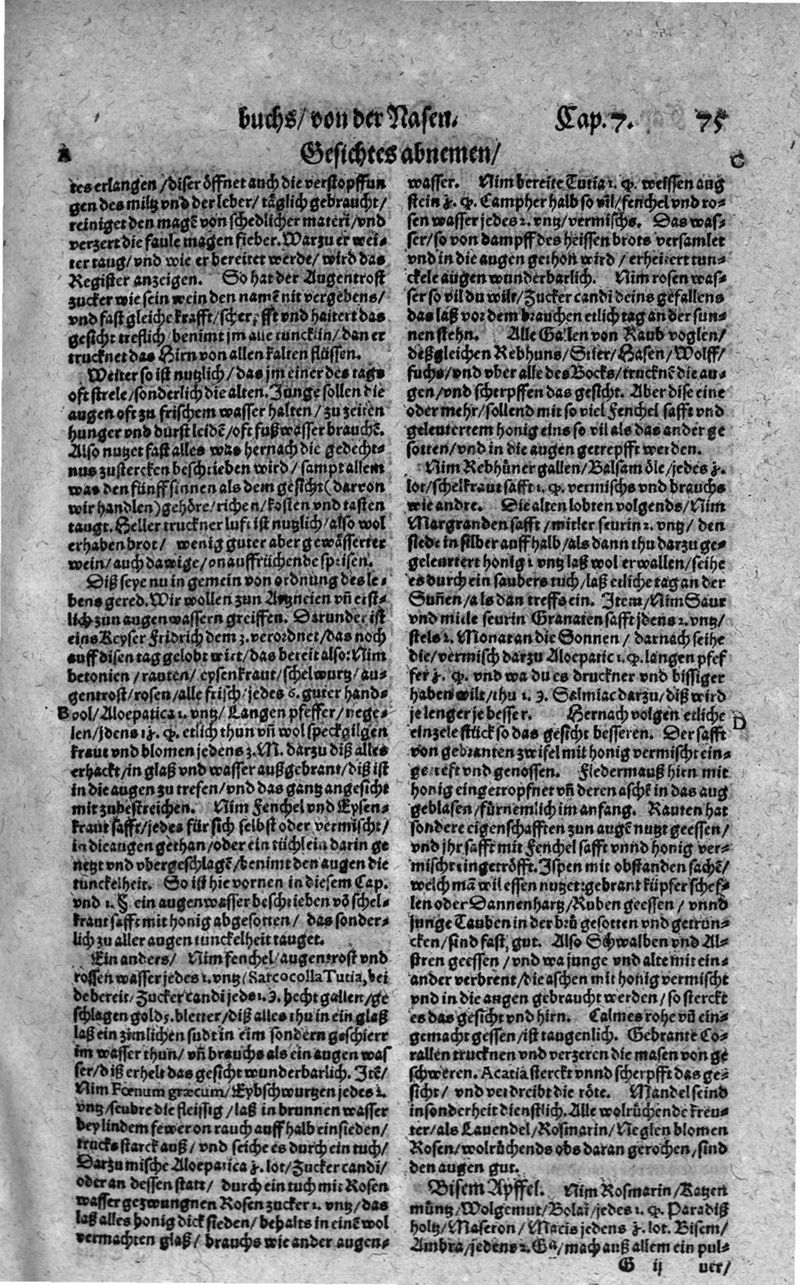 buchs/ von der Nasen. Cap. 7. 75
Gesichtes abnemen/
A
tes erlangen/ diser öffnet auch die verstopffun
gen des miltz vnd der leber/ täglich gebraucht/
reiniget den magē von schedlicher materi/ vnd
verzert die faule magen fieber. Warzu er wei-
ter taug/ vnd wie er bereitet werde/ wird das
Register anzeigen. So hat der Augentrost
zucker wie sein wein den namē nit vergebens/
vnd fast gleiche krafft/ scherpfft vnd haitert das
gesicht treflich/ benimt jm alle tuncklin/ dan er
trucknet das Hirn von allen kalten flüssen.
Weiter so ist nutzlich/ das jm einer des tags
oft strele/ sonderlich die alten. Junge sollen die
augen oft zu frischem wasser halten/ zu zeiten
hunger vnd durst leidē/ oft fußwasser brauchē.
Also nutzet fast alles was hernach die gedecht-
nus zustercken beschrieben wird/ sampt allem
was den fünff sinnen als dem gesicht (darvon
wir handlen) gehöre/ richen/ kosten vnd tasten
taugt. Heller truckner luft ist nutzlich/ also wol
erhaben brot/ wenig guter aber gewässerter
wein/ auch dawige/ onauffrüchende speisen.
Diß seye nu in gemein von ordnung des le-
bens gered. Wir wollen zun Artzneien vñ erst-
lich zun augenwassern greiffen. Darunder ist
eins Keyser Fridrich dem 3. verordnet/ das noch
auff disen tag gelobt wirt/ das bereit also: Nim
betonien/ rauten/ eysenkraut/ schelwurtz/ au-
gentrost/ rosen/ alle frisch/ jedes 6. guter hand-
B vol/ Aloepatica 1. vntz/ Langen pfeffer/ nege-
len/ jdens 1 ʒ. φ. etlich thun vñ wol speckgilgen
kraut vnd blomen jedens 3. M. darzu diß alles
erhackt/ in glaß vnd wasser außgebrant/ diß ist
in die augen zu trefen/ vnd das gantz angesicht
mit zubestreichen. Nim Fenchel vnd Eysen-
kraut safft/ jedes für sich selbst oder vermischt/
in die augen gethan/ oder ein tüchlein darin ge
netzt vnd vbergeschlagē/ benimt den augen die
tunckelheit. So ist hie vornen in diesem Cap.
vnd 1. § ein augenwasser beschrieben vō schel-
kraut safft mit honig abgesotten/ das sonder-
lich zu aller augen tunckelheit tauget.
Ein anders/ Nim fenchel/ augentrost vnd
rossen wasser jedes 1. vntz/ Sarcocolla Tutia, bei
de bereit/ Zucker candi jeds 1. ʒ. hecht gallen/ ge
schlagen gold 5. bletter/ diß alles thu in ein glaß
laß ein zimlichen sudt in eim sondern geschierr
im wasser thun/ vñ brauchs als ein augen was
ser/ diß erhelt das gesicht wunderbarlich. Itē/
Nim Fœnum græcum/ Eybschwurtzen jedes 1.
vntz/ seubre die fleissig/ laß in brunnen wasser
bey lindem fewer on rauch auff halb einsieden/
trucks starck auß/ vnd seiche es durch ein tuch/
Darzu mische Aloepatica ʒ. lot/ Zucker candi/
oder an dessen statt/ durch ein tuch mit Rosen
wasser gezwungnen Rosen zucker 1. vntz/ das
laß alles honig dick sieden/ behalts in einē wol
vermachten glaß/ brauchs wie ander augen-
C
wasser. Nim bereite Tutia 1. φ. weissen aug
stein ʒ. φ. Campher halb so vil/ fenchel vnd ro-
sen wasser jedes 2. vntz/ vermischs. Das was-
ser/ so von dampff des heissen brots versamlet
vnd in die augen gethon wird/ erheitert tun-
ckele augen wunderbarlich. Nim rosen was-
ser so vil du wilt/ Zucker candi deins gefallens
das laß vor dem brauchen etlich tag an der sun-
nen stehn. Alle Gallen von Raub voglen/
deßgleichen Rebhuns/ Stier/ Hasen/ Wolff/
fuchs/ vnd vber alle des Bocks/ trucknē die au-
gen/ vnd scherpffen das gesicht. Aber dise eine
oder mehr/ sollend mit so viel Fenchel safft vnd
geleutertem honig eins so vil als das ander ge
sotten/ vnd in die augen getrepfft werden.
Nim Rebhüner gallen/ Balsam öle/ jedes ʒ.
lot/ schelkraut safft 1. φ. vermischs vnd brauchs
wie andre. Die alten lobten volgends/ Nim
Margranden safft/ mitler seurin 2. vntz/ den
siede in silber auff halb/ als dann thu darzu ge-
geleutert honig 1 vntz laß wol erwallen/ seihe
es durch ein saubers tuch/ laß etliche tag an der
Suñen/ als dan treffs ein. Item/ Nim Saur
vnd milte seurin Granaten safft jdens 2. vntz/
stels 2. Monat an die Sonnen/ darnach seihe
die/ vermisch darzu Aloepatic 1. φ. langen pfef
fer ʒ. φ. vnd wa du es druckner vnd bissiger
haben wilt/ thu 1. ʒ. Selmiac darzu/ diß wird
je lenger je besser. Hernach volgen etliche
D
einzele stück so das gesicht besseren. Der safft
von gebranten zwisel mit honig vermischt ein-
getreft vnd genossen. Fledermauß hirn mit
honig eingetropfnet vñ deren aschē in das aug
geblasen/ fürnemlich im anfang. Rauten hat
sondere eigenschafften zun augē nutzt geessen/
vnd jhr safft mit Fenchel safft vnnd honig ver-
mischt eingetröfft. Ispen mit obstanden sachē/
welch mā wil essen nutzet: gebrant küpfer schef-
len oder Dannenhartz/ Ruben geessen/ vnnd
junge Tauben in der brü gesotten vnd getrun-
cken/ sind fast gut. Also Schwalben vnd Al-
stren geessen/ vnd wa junge vnd alte mit ein-
ander verbrent/ die aschen mit honig vermischt
vnd in die augen gebraucht werden/ so sterckt
es das gesicht vnd hirn. Calmes rohe vñ ein-
gemacht gessen/ ist taugenlich. Gebrante Co-
rallen trucknen vnd verzeren die masen von ge
schweren. Acatia sterckt vnnd scherpfft das ge-
sicht/ vnd verdreibt die röte. Mandel seind
insonderheit dienstlich. Alle wolrüchende kreu-
ter/ als Lauendel/ Rosmarin/ Neglen blomen
Rosen/ wolrüchends obs daran gerochen/ sind
den augen gut.
Bisem Apffel. Nim Rosmarin/ Katzen
müntz/ Wolgemut/ Bolai/ jedes 1. φ. Paradiß
holtz/ Maseron/ Macis jedens ʒ. lot. Bisem/
Ambra/ jedens 2. Gā/ mach auß allem ein pul-
G ij uer/